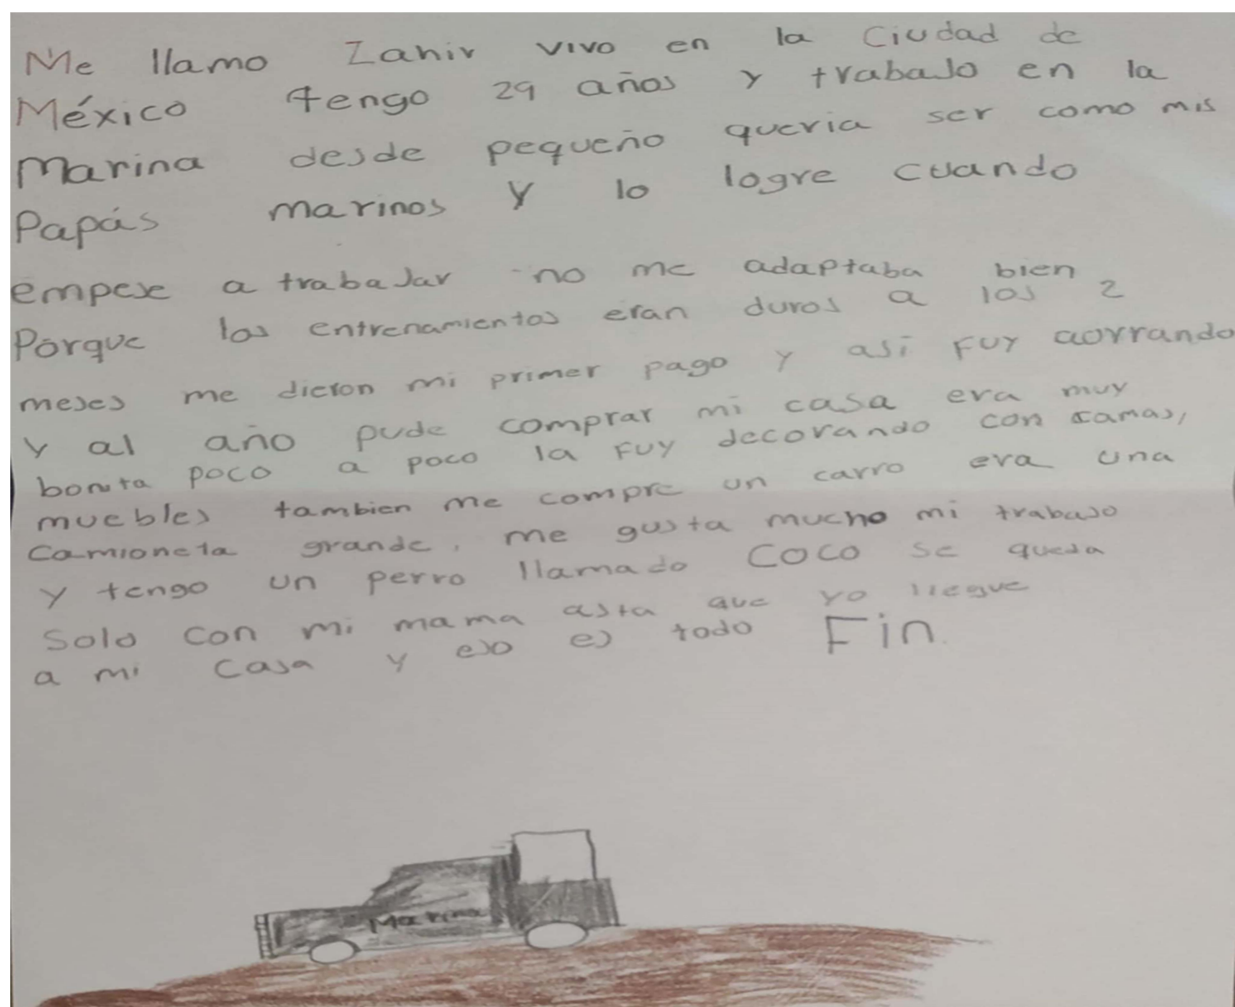 Me llamo Zahir vivo en la Ciudad de
México tengo 29 años y trabaJo en la
Marina desde pequeño queria ser como mis
Papás marinos y lo logre cuando
empese a trabaJar no me adaptaba bien
Porque los entrenamientos eran duros a los 2
meses me dieron mi primer pago y asi Fuy aorrando
y al año pude comprar mi casa era muy
bonita poco a poco la Fuy decorando con camas,
muebles tambien me compre un carro era una
Camioneta grande, me gusta mucho mi trabaJo
y tengo un perro llamado COCO se queda
Solo con mi mama asta que yo llegue
a mi Casa y eso es todo Fin.
Marina